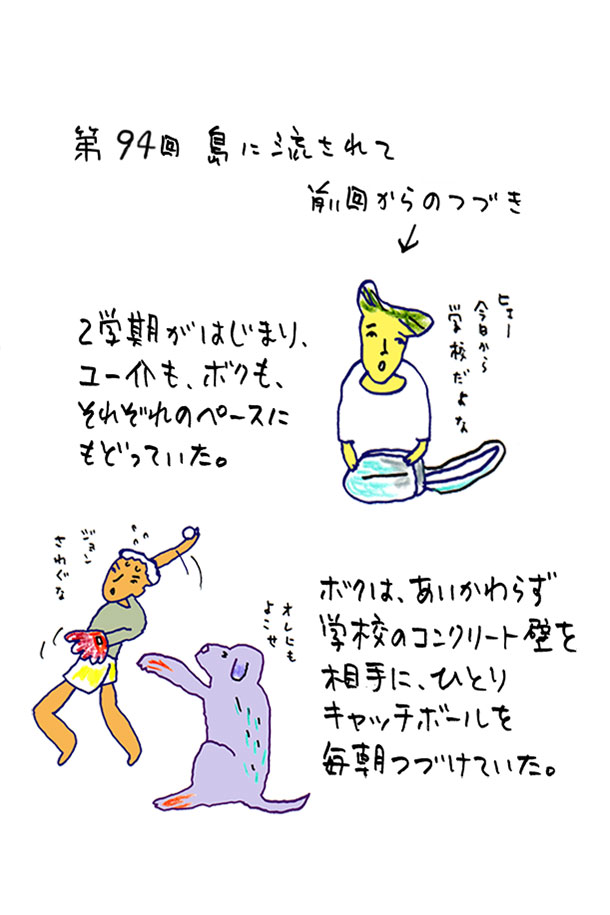 第94回 島に流されて
前回からのつづき
↓
2学期がはじまり、
ユー介も、ボクも、
それぞれのペースに
もどっていた。
ヒェー
今日から
学校だよな
ジョン
さわぐな
オレにも
よこせ
ボクは、あいかわらず
学校のコンクリート壁を
相手に、ひとり
キャッチボールを
毎朝つづけていた。